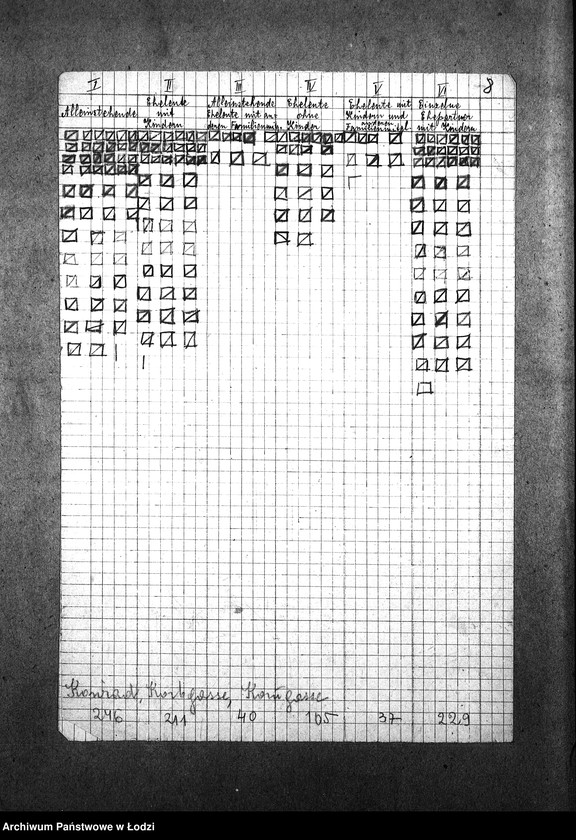 8
I II III IV V VI
Alleinstehende
Eheleute mit Kindern
Alleinstehende Eheleute mit an-
deren Familienmitgl.
Eheleute ohne Kinder
Eheleute mit Kindern und
anderen
Familienmitgl.
Einzelne Ehepartner mit Kindern
Konrad, Korbgasse, Korngasse
246 211 40 105 37 229
Archiwum Państwowe w Łodzi